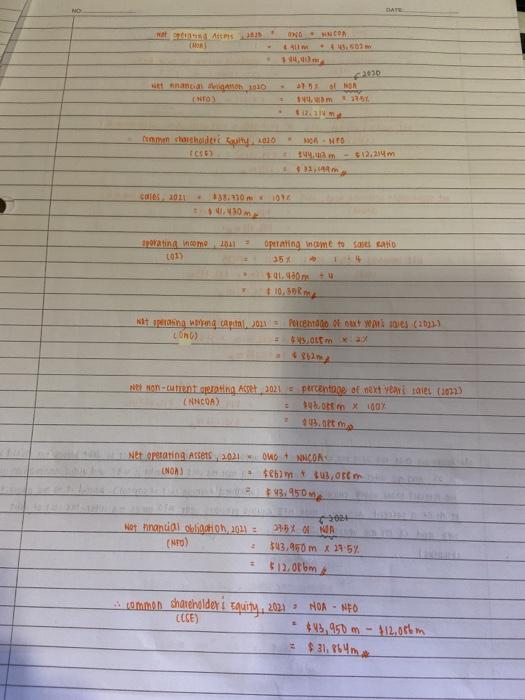 NO
DATE
Net Operating Assets, 2020 = OWC + NNCOA
(NOA) = $ 911m + $ 43,502m
= $ 44,413m
2020
Net Financial Obligation, 2020 = 27.5% of NOA
(NFO) = $44,413m × 27.5%
= $12,214m
Common shareholder's Equity, 2020 = NOA - NFO
(CSE) = $44,413m - $12,214m
= $ 32,199m
Sales, 2021 = $38,720m × 107%
= $ 41,430m
Operating income, 2021 = Operating income to sales Ratio
(OI) = 25% → 1 ÷ 4
= $41,430m ÷ 4
= $ 10,358m
Net operating working capital, 2021 = Percentage of next year's sales (2022)
(OWC) = $43,088m × 2%
= $ 862m
Net non-current operating Asset, 2021 = percentage of next year's sales (2022)
(NNCOA) = $43,088m × 100%
= $43,088m
Net operating Assets, 2021 = OWC + NNCOA
(NOA) = $862m + $43,088m
= $43,950m
2021
Net Financial obligation, 2021 = 27.5% of NOA
(NFO) = $43,950m × 27.5%
= $12,086m
∴ common shareholder's Equity, 2021 = NOA - NFO
(CSE) = $43,950m - $12,086m
= $31,864m